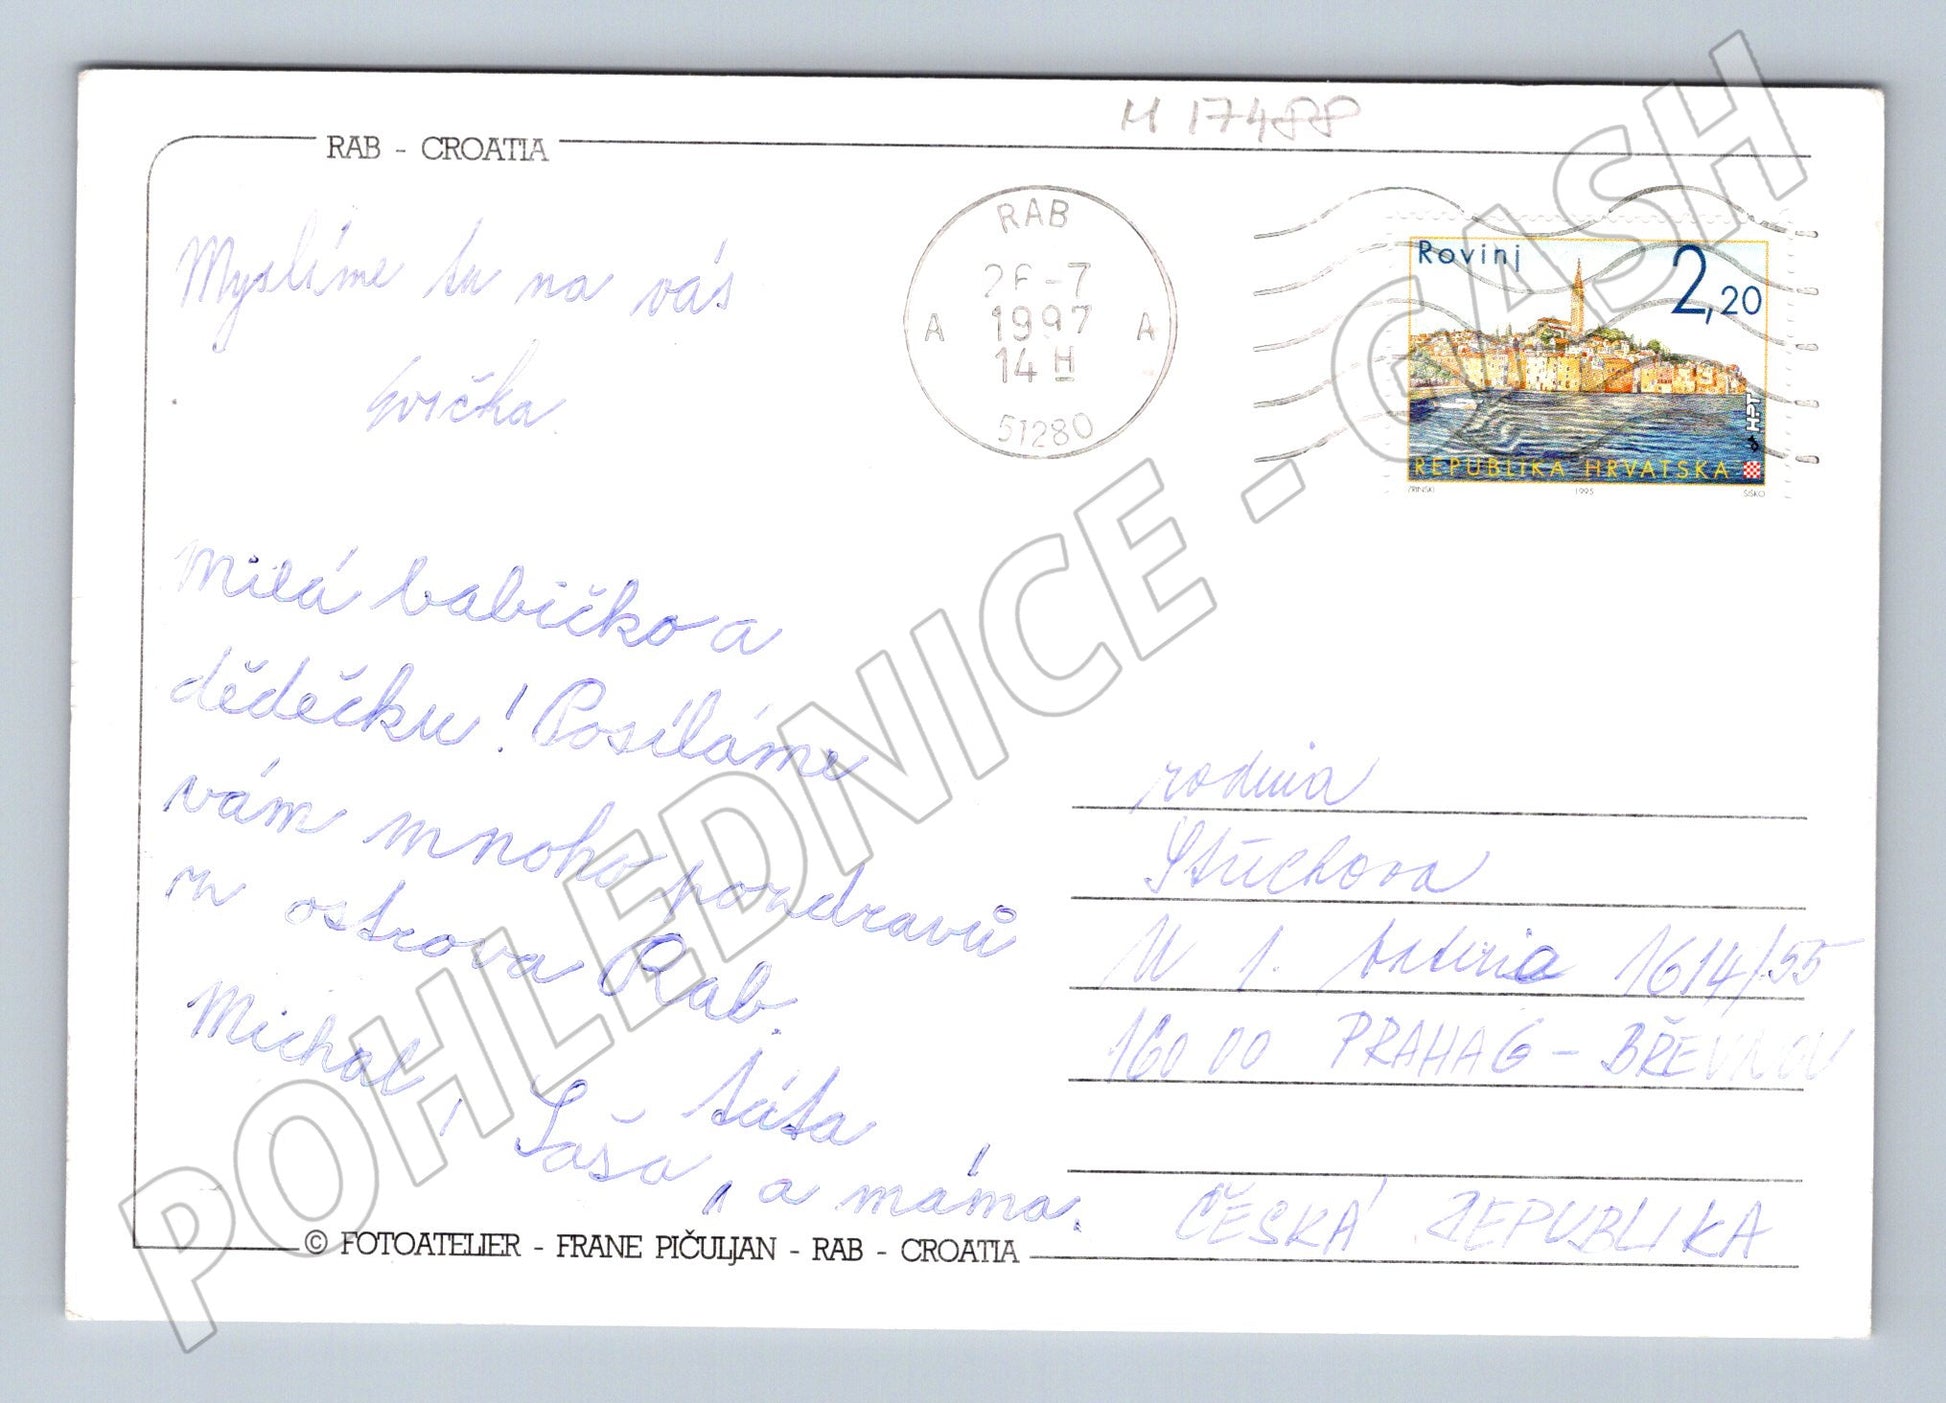 M 17488
RAB - CROATIA
RAB
26-7
1997
14 H
A A
51280
Rovinj
2,20
HPT
REPUBLIKA HRVATSKA
ZRINSKI 1995 ŠIŠKO
Myslíme tu na vás
Evička.
Milá babičko a
dědečku! Posíláme
vám mnoho pozdravů
z ostrova Rab.
Michal, Saša, táta
a máma.
rodina
Stüchova
U 1. baterie 1614/55
160 00 PRAHA 6 - BŘEVNOV
ČESKÁ REPUBLIKA
© FOTOATELIER - FRANE PIČULJAN - RAB - CROATIA
POHLEDNICE - GASH